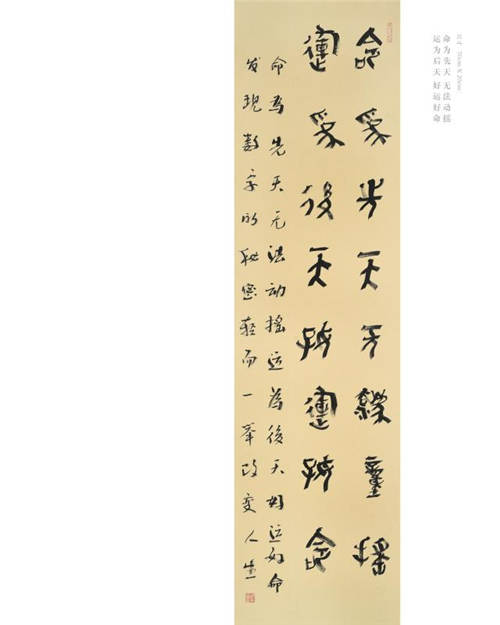 命为先天 无法动摇
运为后天 好运好命
命為先天无法動搖
運為後天好運好命
命為先天无法动摇运為後天好运好命
发现数字的秘密轻而一举改变人生